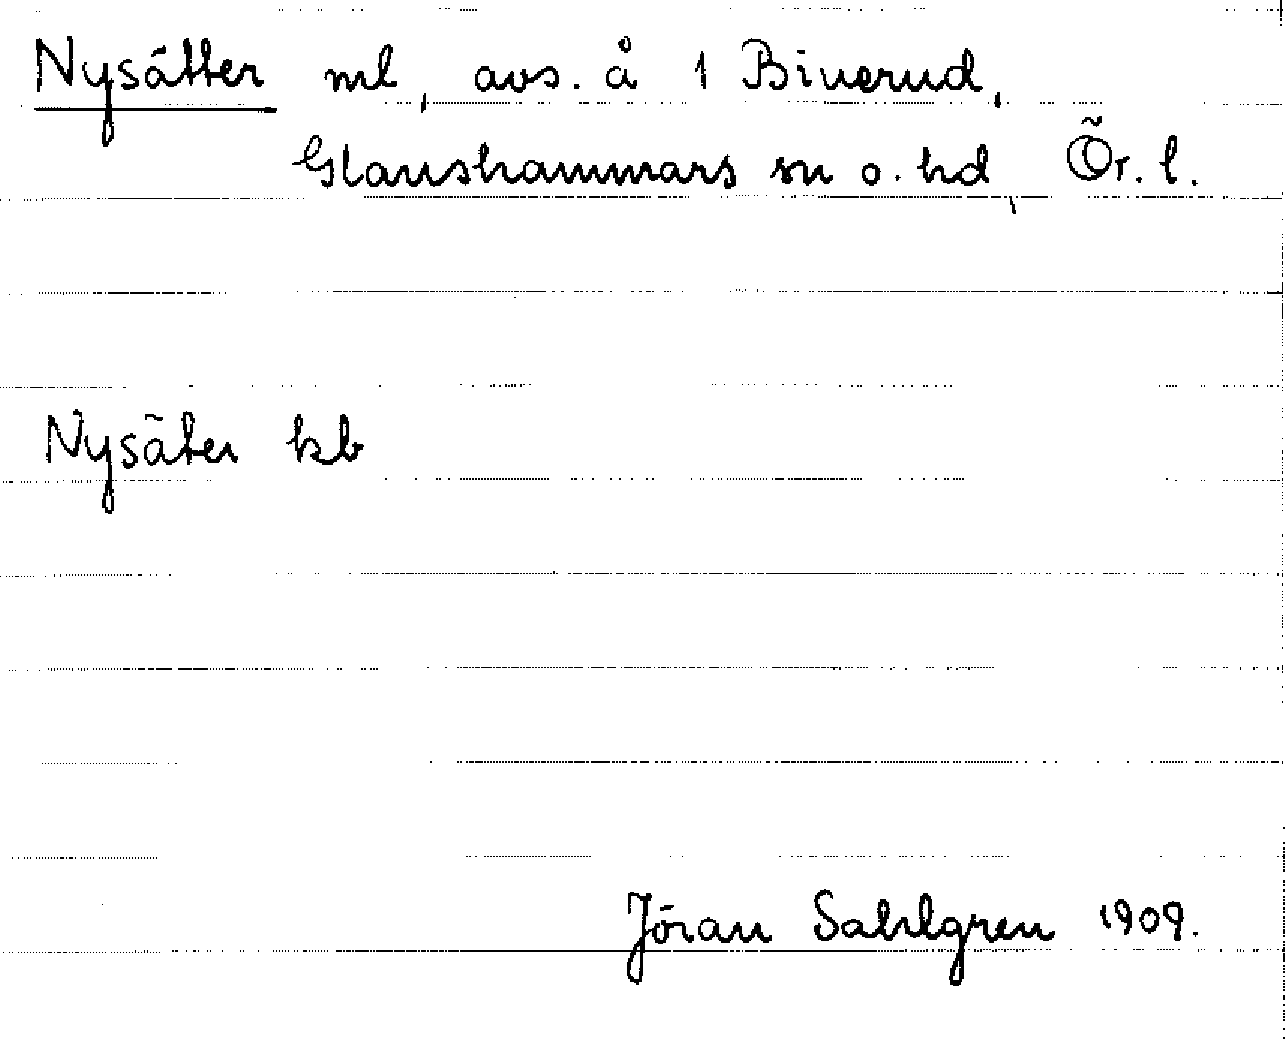 Nysätter ml, avs. å 1 Binerud,
Glanshammars sn o. hd, Ör. l.
Nysäter kb
Jöran Sahlgren 1909.